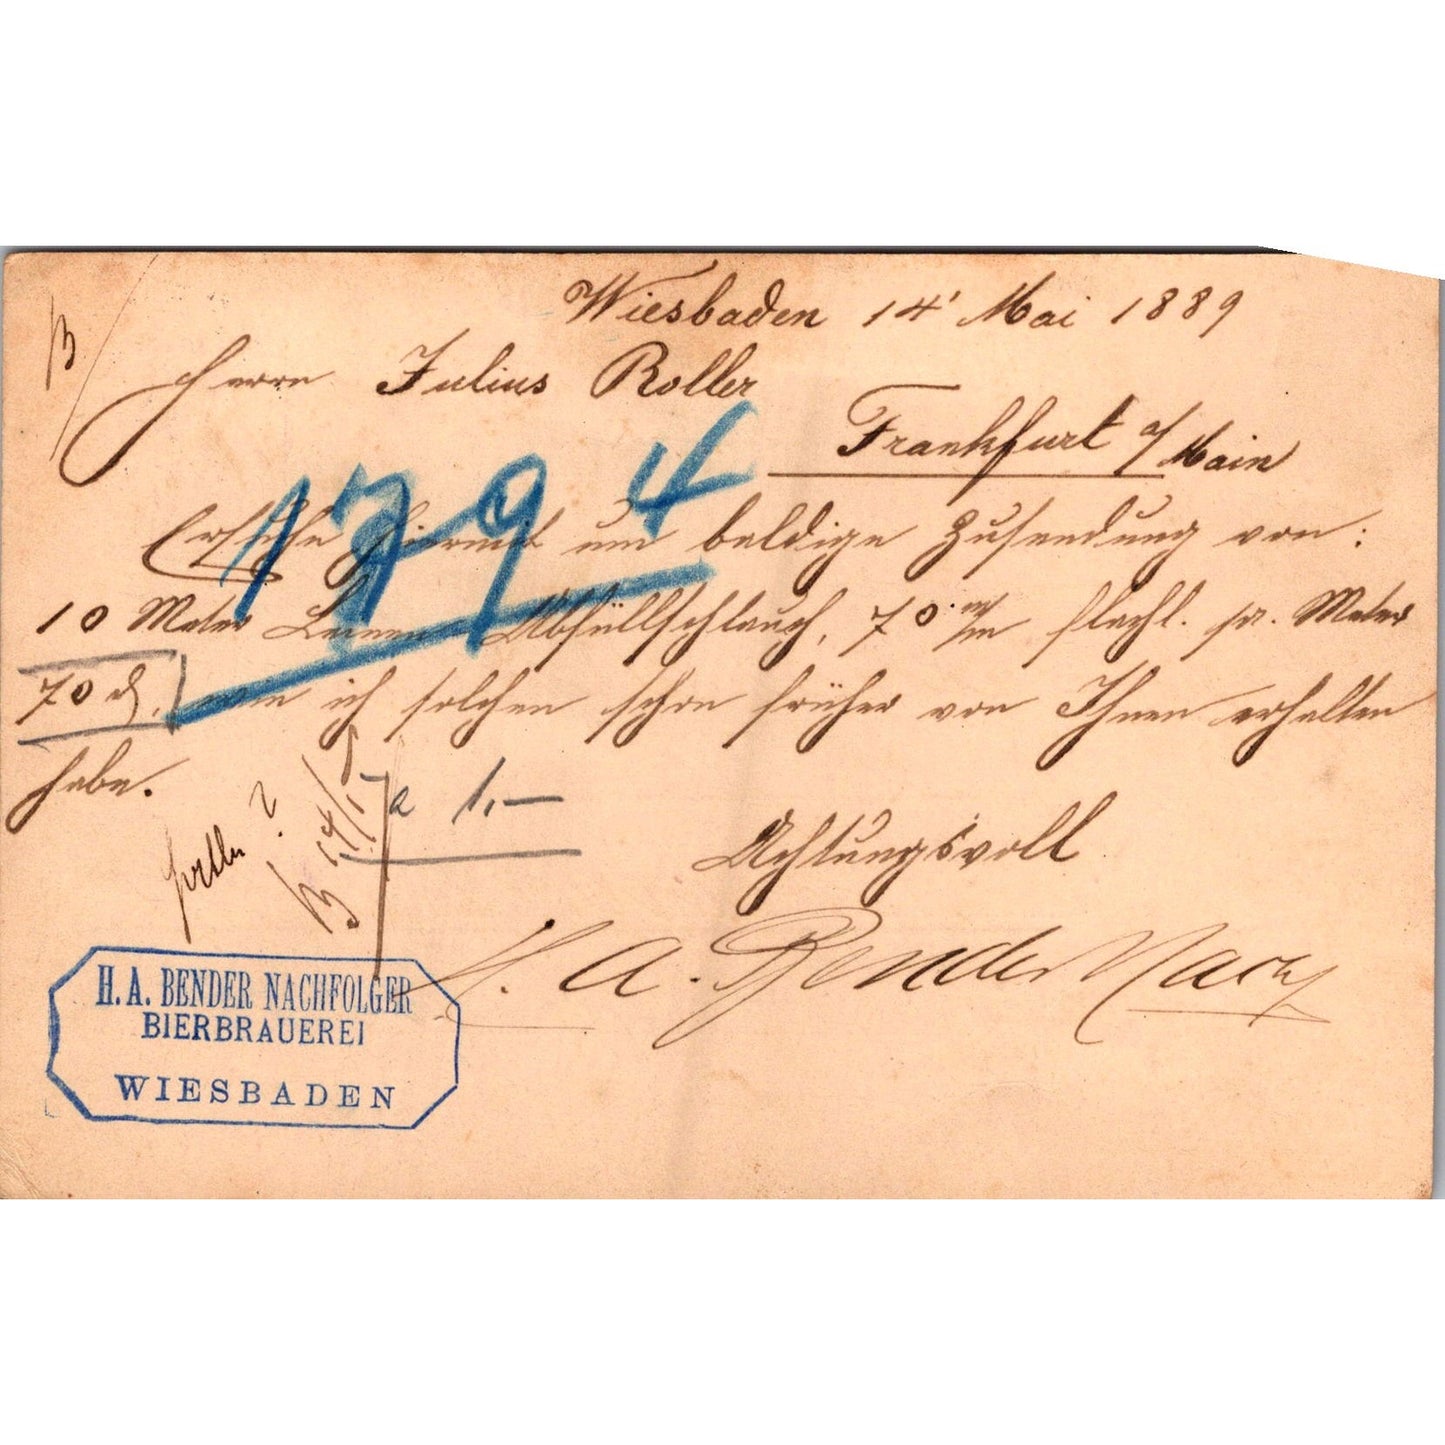 Wiesbaden 14' Mai 1889
B
Herrn Julius Roller
Frankfurt a/Main
1794
Ersuche hiermit um baldige Zusendung von:
10 Meter Leinen Abfüllschlauch, 70 m/m flachl. pr. Meter
70 ₰, wie ich solchen schon früher von Ihnen erhalten
habe.
B 14/5
a 1,—
Achtungsvoll
H. A. Bender Nachf
H. A. BENDER NACHFOLGER
BIERBRAUEREI
WIESBADEN